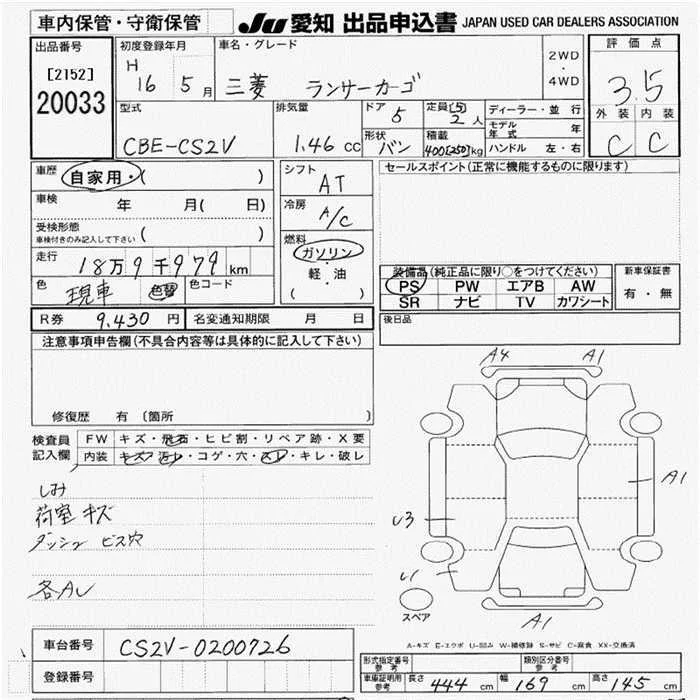 車内保管・守衛保管
JU 愛知 出品申込書 JAPAN USED CAR DEALERS ASSOCIATION
出品番号
[2152]
20033
初度登録年月
H 16 5 月
車名・グレード
三菱 ランサーカーゴ
2WD
・
4WD
評価点
3.5
外装 内装
C C
型式
CBE-CS2V
排気量
1.46 cc
ドア
5
定員 [5]
2 人
形状
バン
積載
400[250]kg
ディーラー・並行
モデル年式 年
ハンドル 左・右
車歴
自家用・( )
車検
年 月( 日)
受検形態
車検付きのみ記入して下さい ( )
走行
18万9千979 km
色
現車
色替
色コード
シフト
AT
冷房
A/C
燃料
ガソリン
軽・油
( )
セールスポイント(正常に機能するものに限ります)
装備品(純正品に限り○をつけてください)
PS PW エアB AW
SR ナビ TV カワシート
新車保証書
有・無
R券 9,430 円 名変通知期限 月 日
後日品
注意事項申告欄(不具合内容等は具体的に記入して下さい)
修復歴 有〔箇所 〕
検査員
記入欄
FW キズ・飛石・ヒビ割・リペア跡・X要
内装 キズ・汚レ・コゲ・穴・スレ・キレ・破レ
しみ
荷室 キズ
ダッシュ ビス穴
各AU
A4 A1
A1
U3
U1
スペア
A1
A-キズ E-エクボ U-凹み W-補修跡 S-サビ C-腐食 XX-交換済
車台番号 CS2V-0200726
登録番号
形式指定番号
参考
類別区分番号
参考
車庫証明用
参考
長さ 444 cm 幅 169 cm 高さ 145 cm